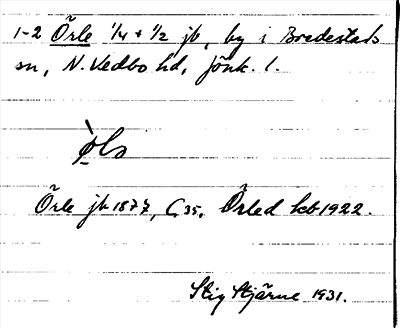 1-2 Örle 1/4 + 1/2 jb, by i Bredestads
sn, N. Vedbo hd, Jönk. l.
Örle jb 1877, C, 35, Örled kb 1922.
Stig Stjärne 1931.